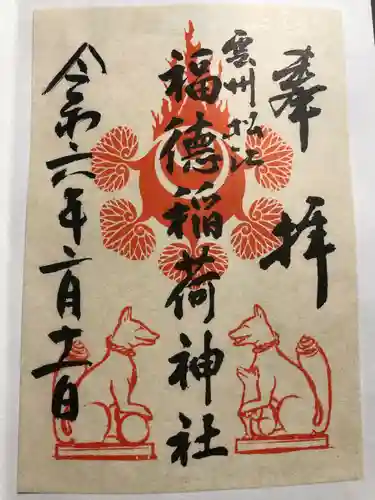 奉拝
雲州松江
福德稲荷神社
令和六年二月十一日